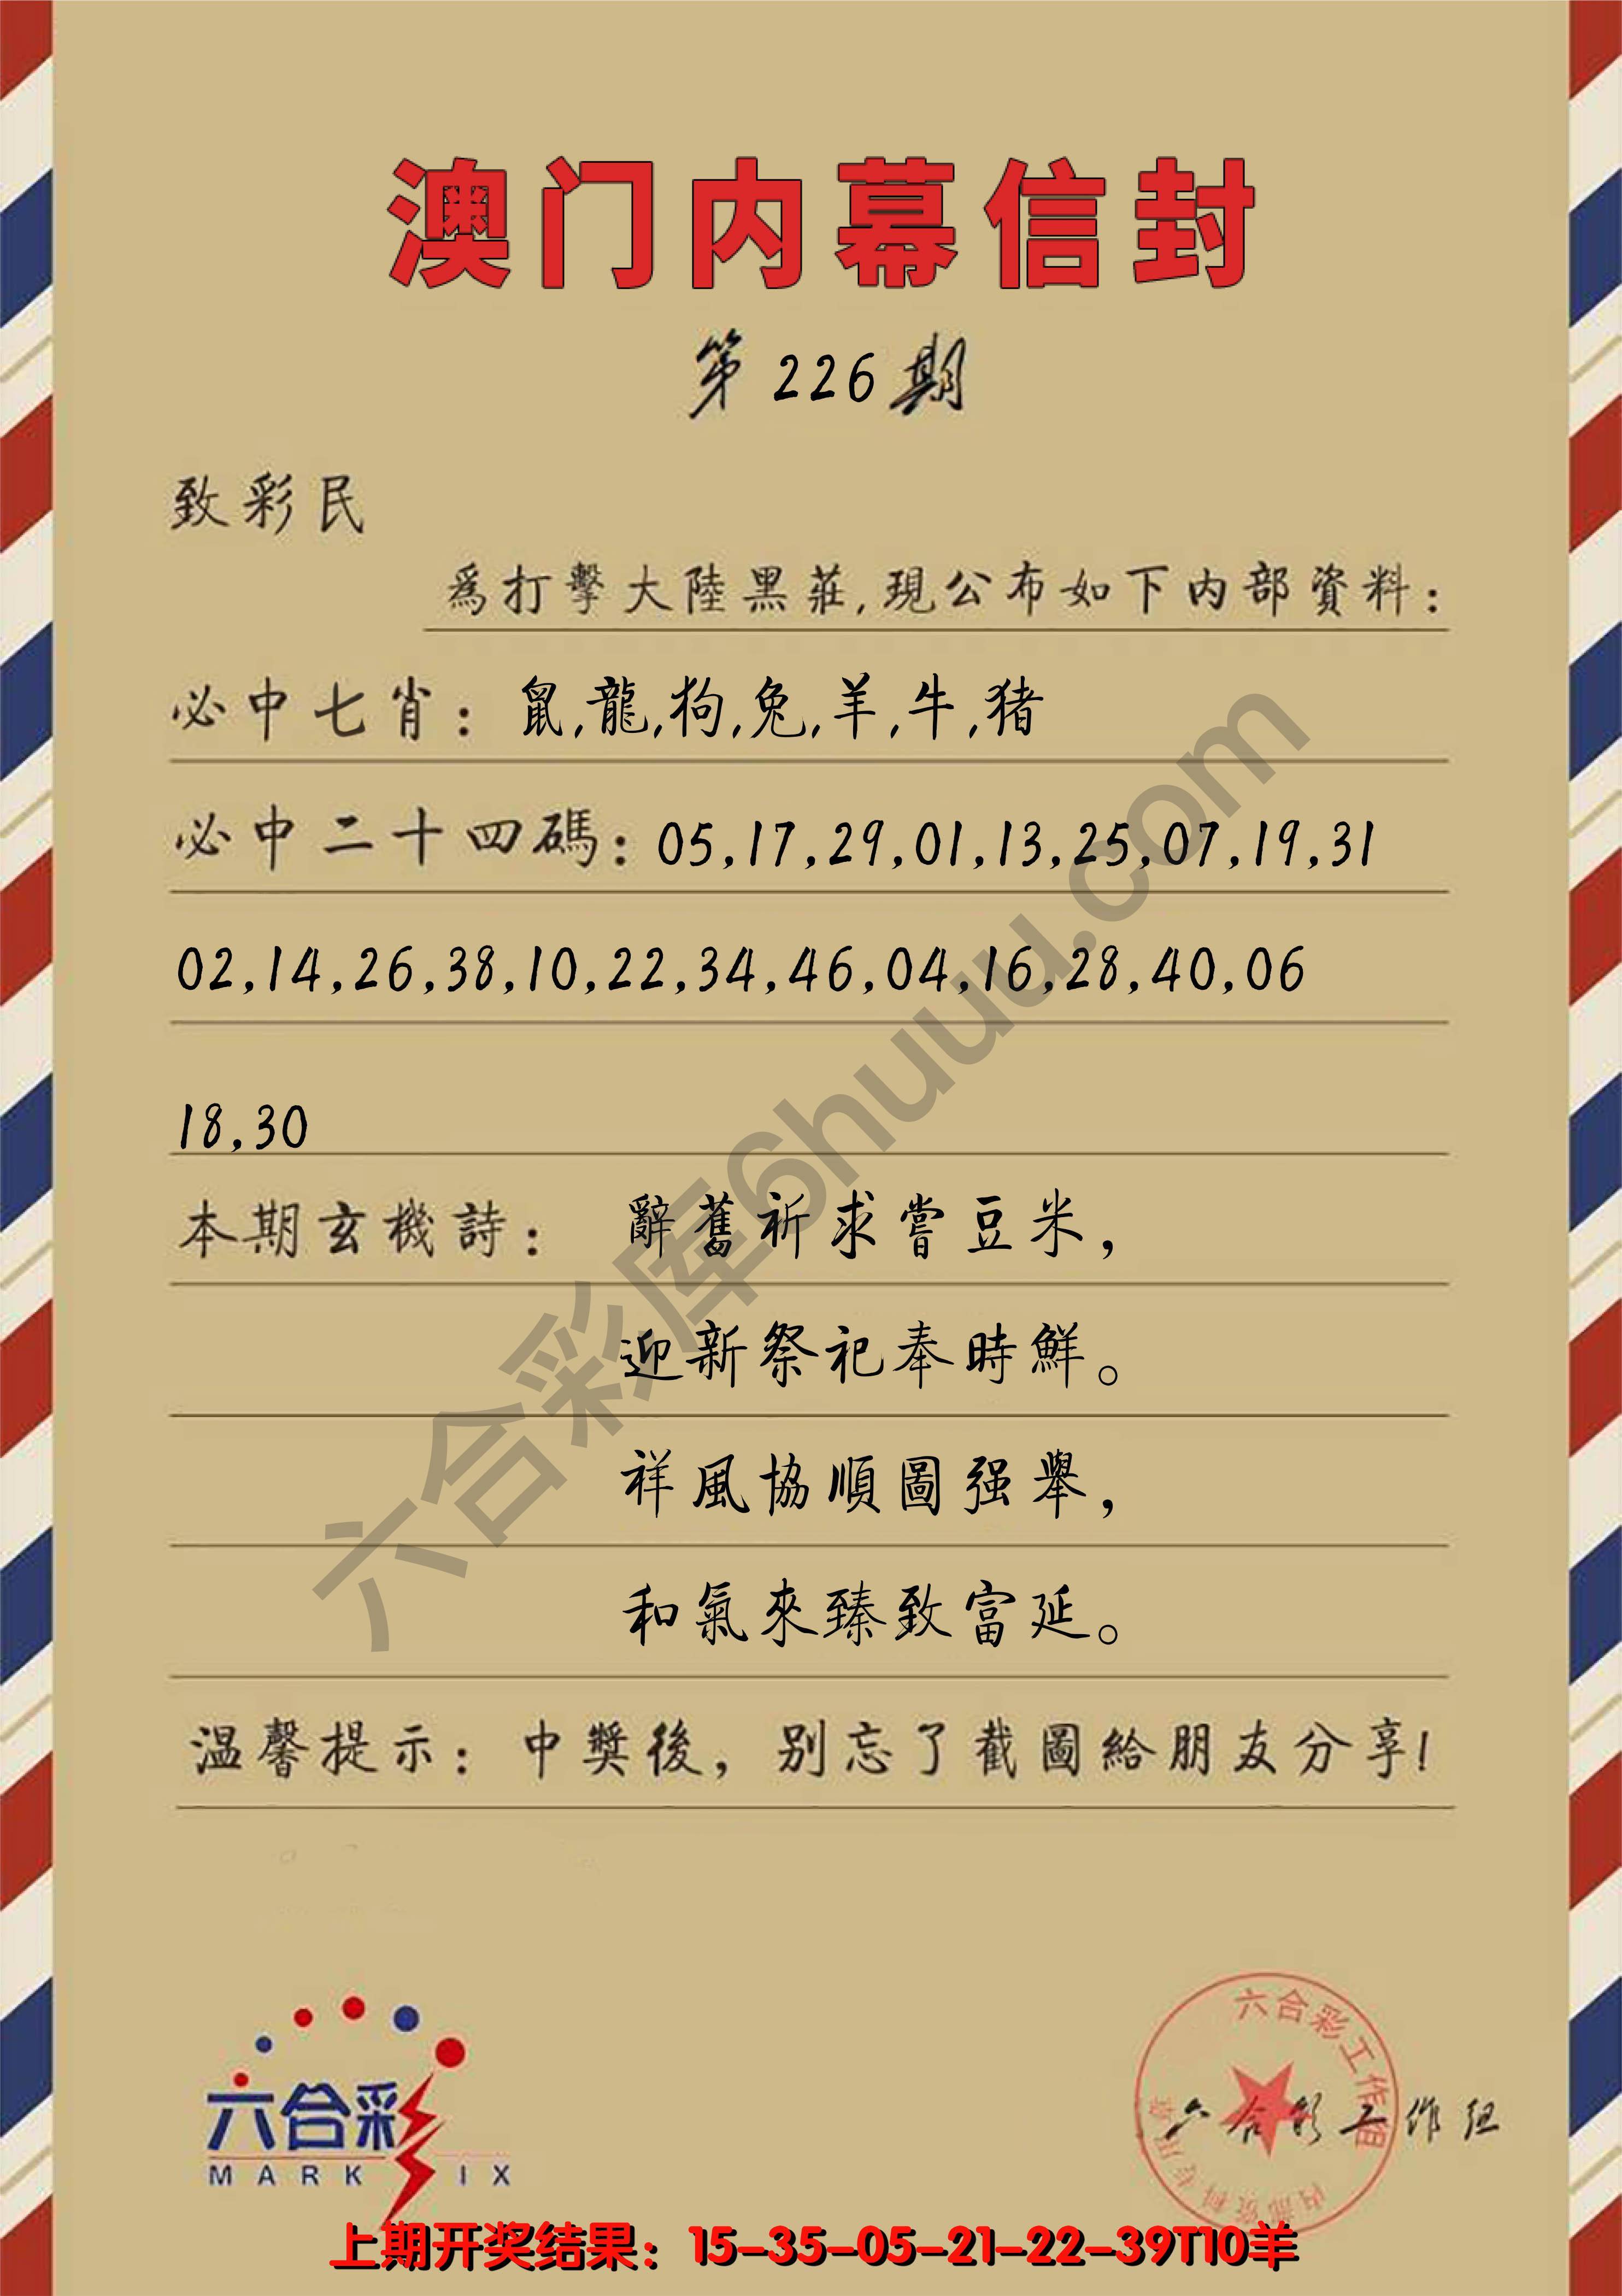 澳门内幕信封
第226期
致彩民
爲打擊大陸黑莊,現公布如下内部資料:
必中七肖: 鼠,龍,狗,兔,羊,牛,猪
必中二十四碼: 05,17,29,01,13,25,07,19,31
02,14,26,38,10,22,34,46,04,16,28,40,06
18,30
本期玄機詩: 辭舊祈求嘗豆米,
迎新祭祀奉時鮮。
祥風協順圖强舉,
和氣來臻致富延。
温馨提示: 中獎後, 别忘了截圖給朋友分享!
六合彩库6huuu.com
六合彩
MARK IX
六合彩工作组
六合彩工作组
上期开奖结果: 15-35-05-21-22-39T10羊